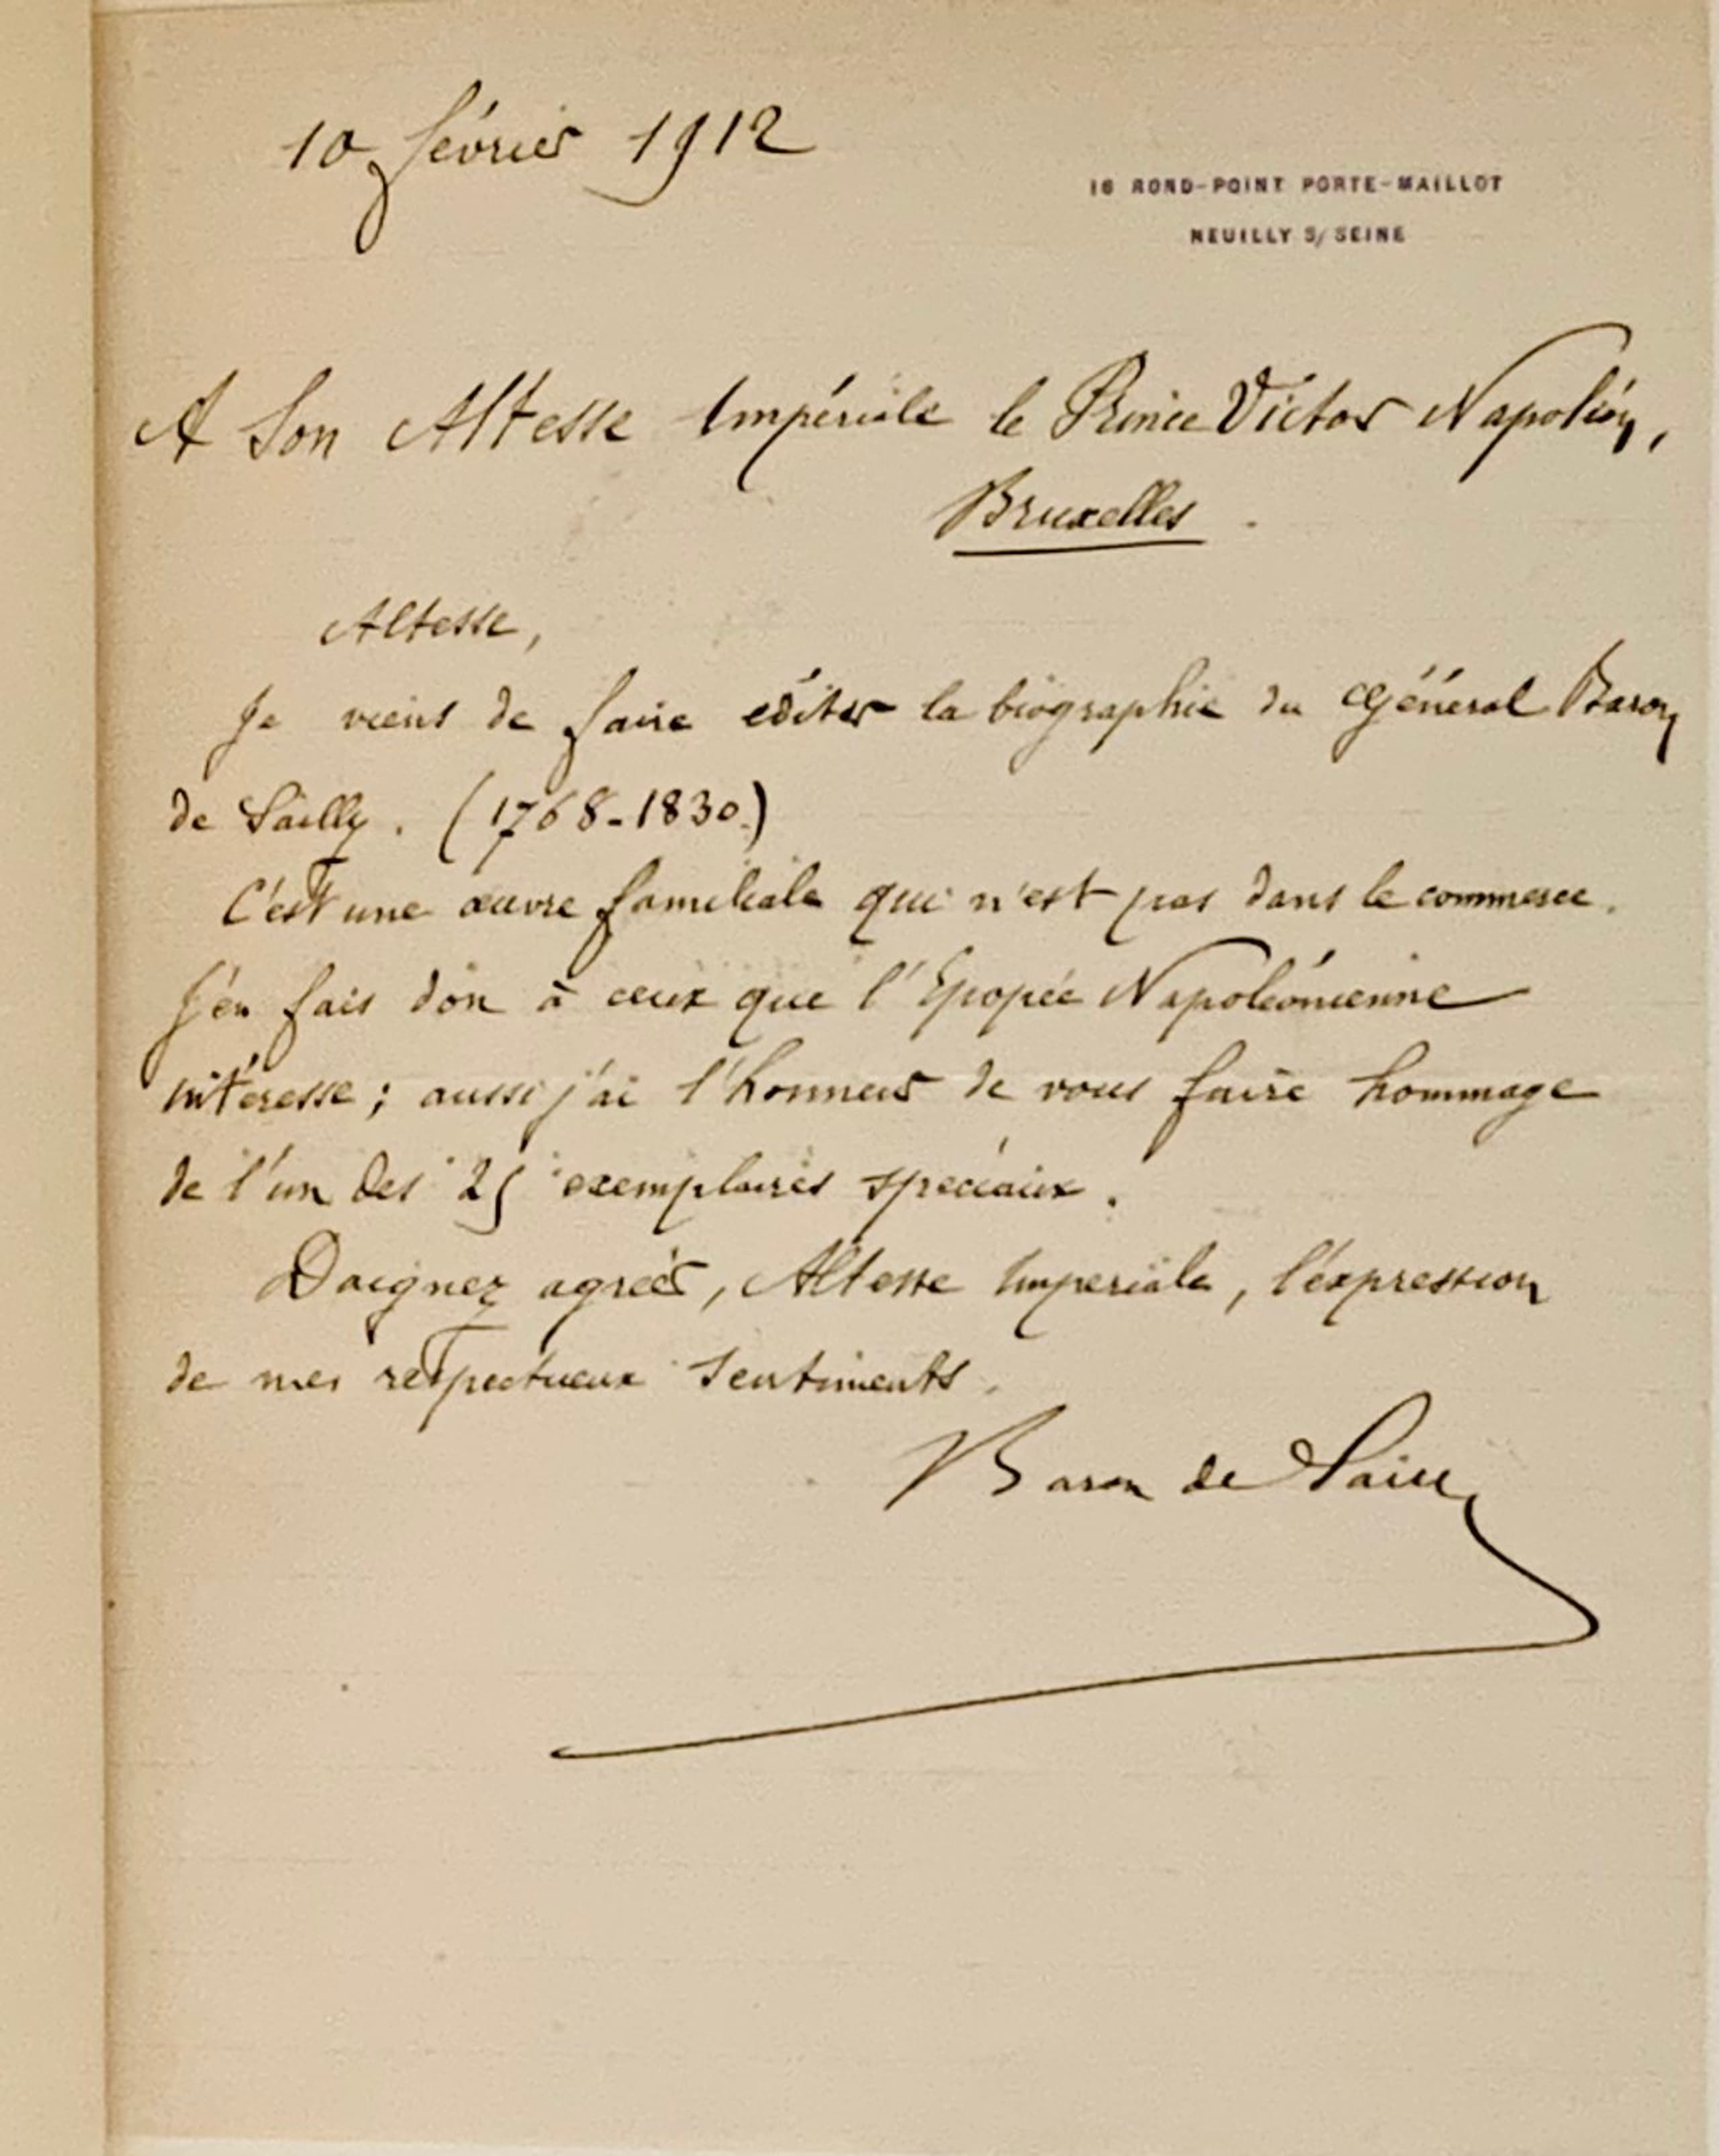 10 février 1912
16 ROND-POINT PORTE-MAILLOT
NEUILLY S/SEINE
A Son Altesse Impériale le Prince Victor Napoléon,
Bruxelles.
Altesse,
Je viens de faire éditer la biographie du Général Baron
de Sailly. (1768-1830.)
C'est une œuvre familiale qui n'est pas dans le commerce.
J'en fais don à ceux que l'Epopée Napoléonienne
intéresse ; aussi j'ai l'honneur de vous faire hommage
de l'un des 25 exemplaires spéciaux.
Daignez agréer, Altesse Impériale, l'expression
de mes respectueux sentiments.
Baron de Sailly